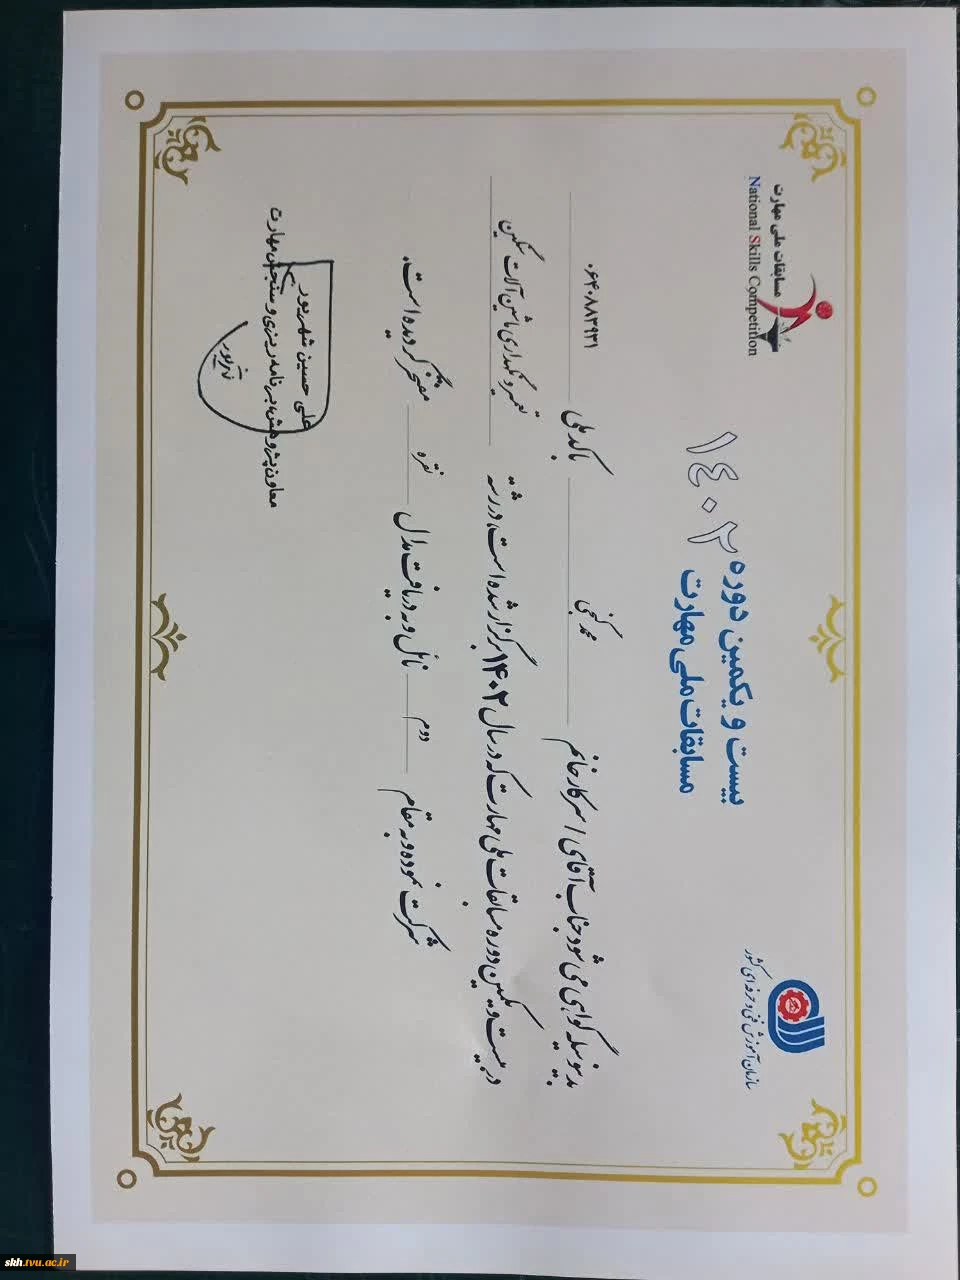 مسابقات ملی مهارت
National Skills Competition
سازمان آموزش فنی و حرفه‌ای کشور
بیست و یکمین دوره
مسابقات ملی مهارت
۱٤۰۲
بدینوسیله گواهی می شود جناب آقای / سرکار خانم محمد گنجی با کد ملی ۰۶۴۰۸۸۳۹۳۱
در بیست و یکمین دوره مسابقات ملی مهارت که در سال ۱۴۰۲ برگزار شده است، در رشته تعمیر و نگهداری ماشین آلات سنگین
شرکت نموده و به مقام دوم نائل و به دریافت مدال نقره مفتخر گردیده است.
علی حسین شهریور
معاون پژوهش، برنامه ریزی و سنجش مهارت
skh.tvu.ac.ir